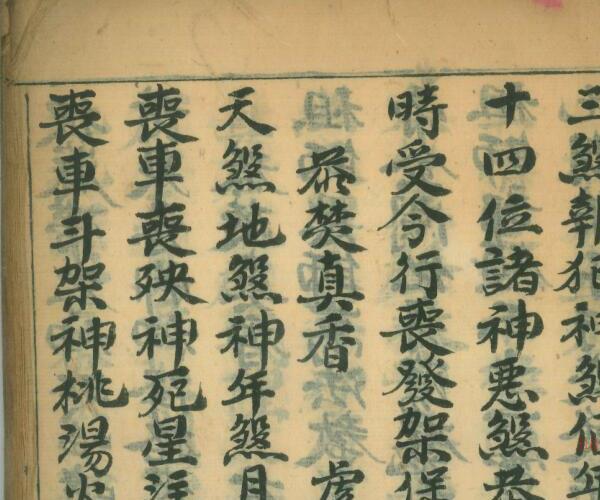 三煞報犯神煞值年
十四位諸神惡煞共
時受令行喪發架保
恭焚真香　虔
天煞地煞神年煞月
喪車喪殃神死星注
喪車斗架神桃湯火